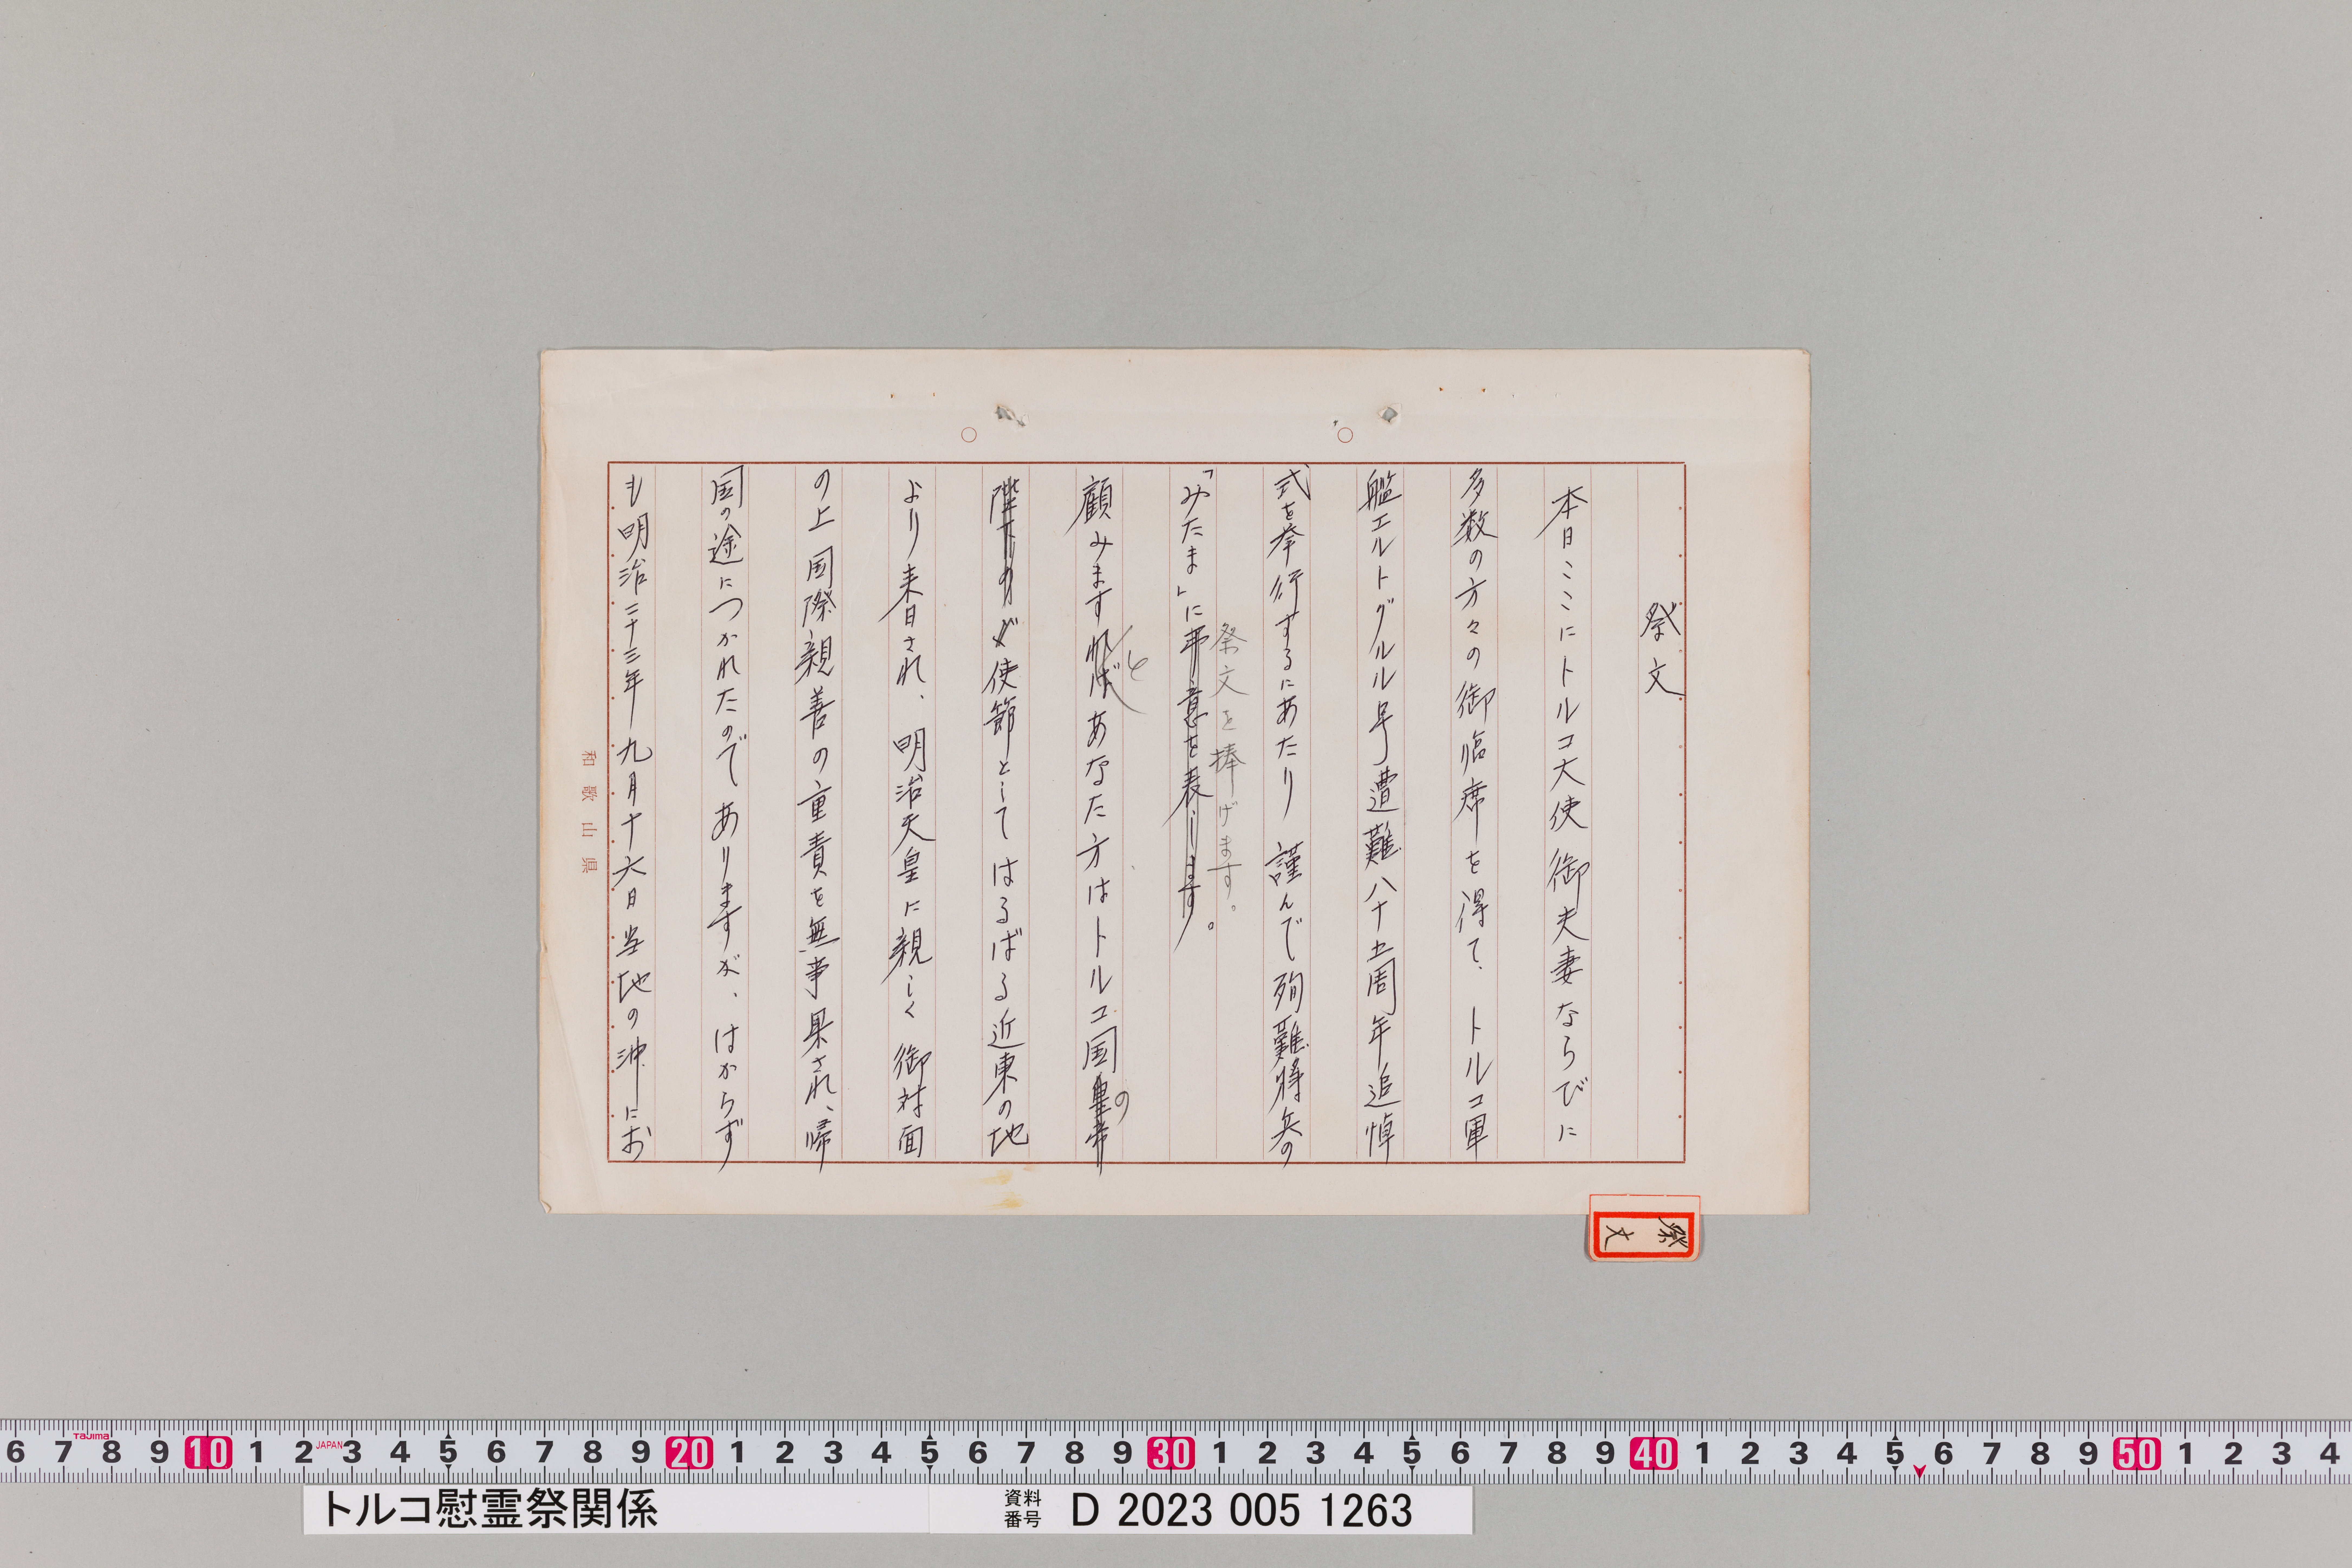 祭文
本日ここにトルコ大使御夫妻ならびに
多数の方々の御臨席を得て、トルコ軍
艦エルトグルル号遭難八十五周年追悼
式を挙行するにあたり 謹んで殉難将兵の
祭文を捧げます。
「みたま」に弔意を表します。
と
顧みますればあなた方はトルコ国皇帝
の
陛下のが使節としてはるばる近東の地
より来日され、明治天皇に親しく御対面
の上国際親善の重責を無事果され、帰
国の途につかれたのでありますが、はからず
も明治二十三年九月十六日当地の沖にお
和歌山県
祭文
6 7 8 9 10 1 2 3 4 5 6 7 8 9 20 1 2 3 4 5 6 7 8 9 30 1 2 3 4 5 6 7 8 9 40 1 2 3 4 5 6 7 8 9 50 1 2 3 4
Tajima
JAPAN
トルコ慰霊祭関係
資料番号 D 2023 005 1263